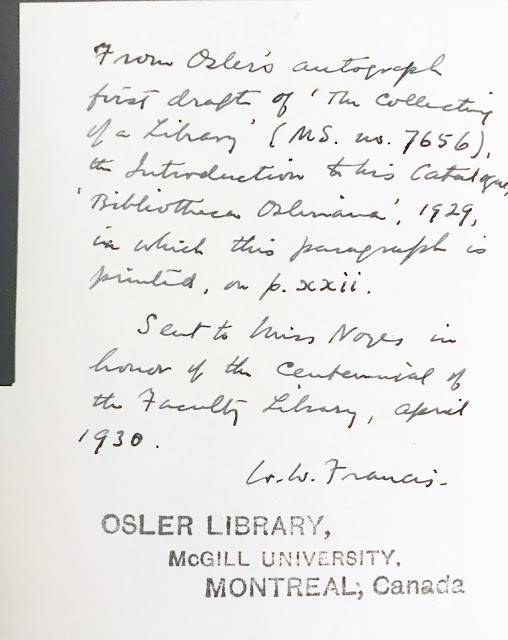 From Osler's autograph
first draft of 'The Collecting
of a Library' (MS. no. 7656),
the Introduction to his Catalogue,
'Bibliotheca Osleriana', 1929,
in which this paragraph is
printed, on p. xxii.
Sent to Miss Noyes in
honor of the Centennial of
the Faculty Library, April
1930.
W. W. Francis.
OSLER LIBRARY,
McGILL UNIVERSITY,
MONTREAL; Canada